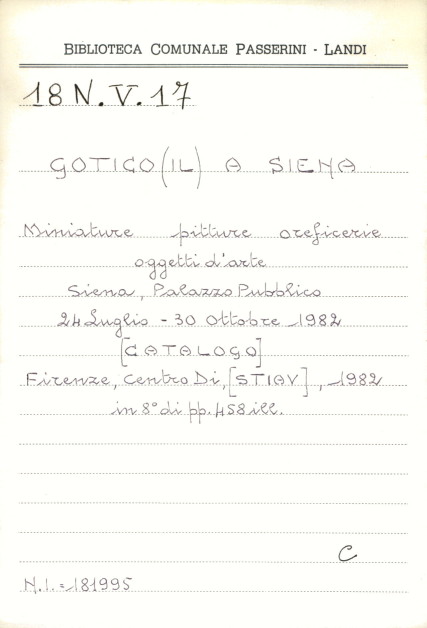 BIBLIOTECA COMUNALE PASSERINI - LANDI
18 N.V.17
GOTICO (IL) A SIENA
Miniature pitture oreficerie
oggetti d'arte
Siena, Palazzo Pubblico
24 Luglio - 30 Ottobre 1982
[CATALOGO]
Firenze, Centro Di, [STIAV], 1982
in 8° di pp. 458 ill.
C
N.I. = 181995